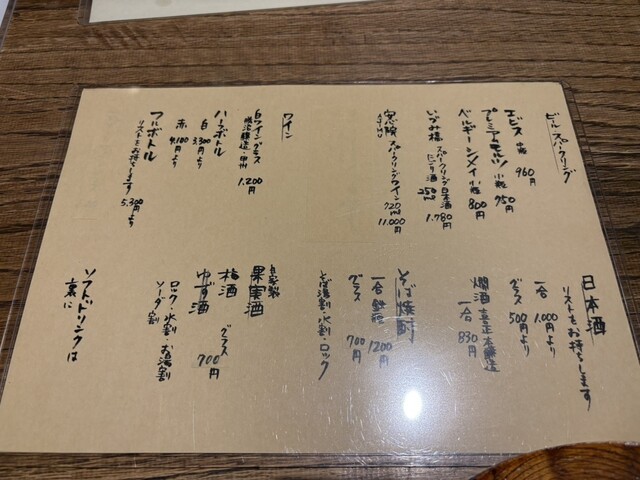 ビール・スパークリング
エビス 中瓶 960円
プレミアムモルツ 小瓶 750円
ベルギーシメイ 小瓶 800円
いづみ橋 スパークリング日本酒 にごり酒 250ml 1.780円
安心院 スパークリングワイン 720ml 11.000円
AJIMU
ワイン
白ワイン グラス 1.200円
勝沼醸造・甲州
ハーフボトル
白 3.300円より
赤 4.100円より
フルボトル
リストをお持ちします 5.300円より
日本酒
リストをお持ちします
一合 1.000円より
グラス 500円より
燗酒 真正 本醸造
一合 830円
そば焼酎
一合 1200円
グラス 700円
そば湯割・水割・ロック
自家製
果実酒
梅酒
ゆず酒 グラス 700円
ロック・水割・お湯割
ソーダ割
ソフトドリンクは
裏に